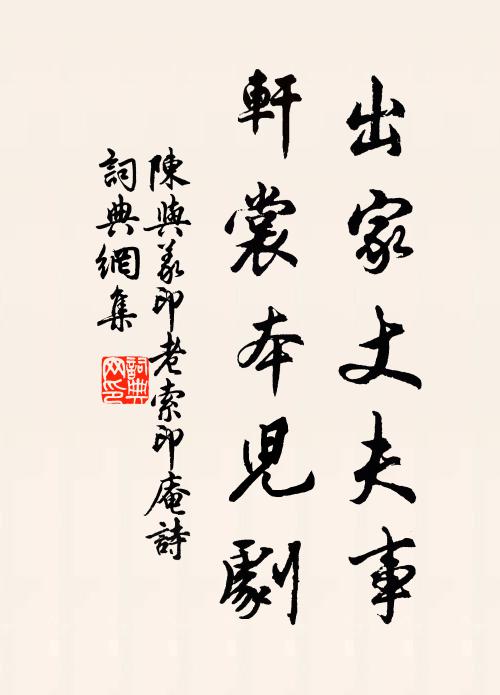 出家丈夫事
軒裳本兒劇
陳與義印老索印庵詩
詞典網集
詞典
网印